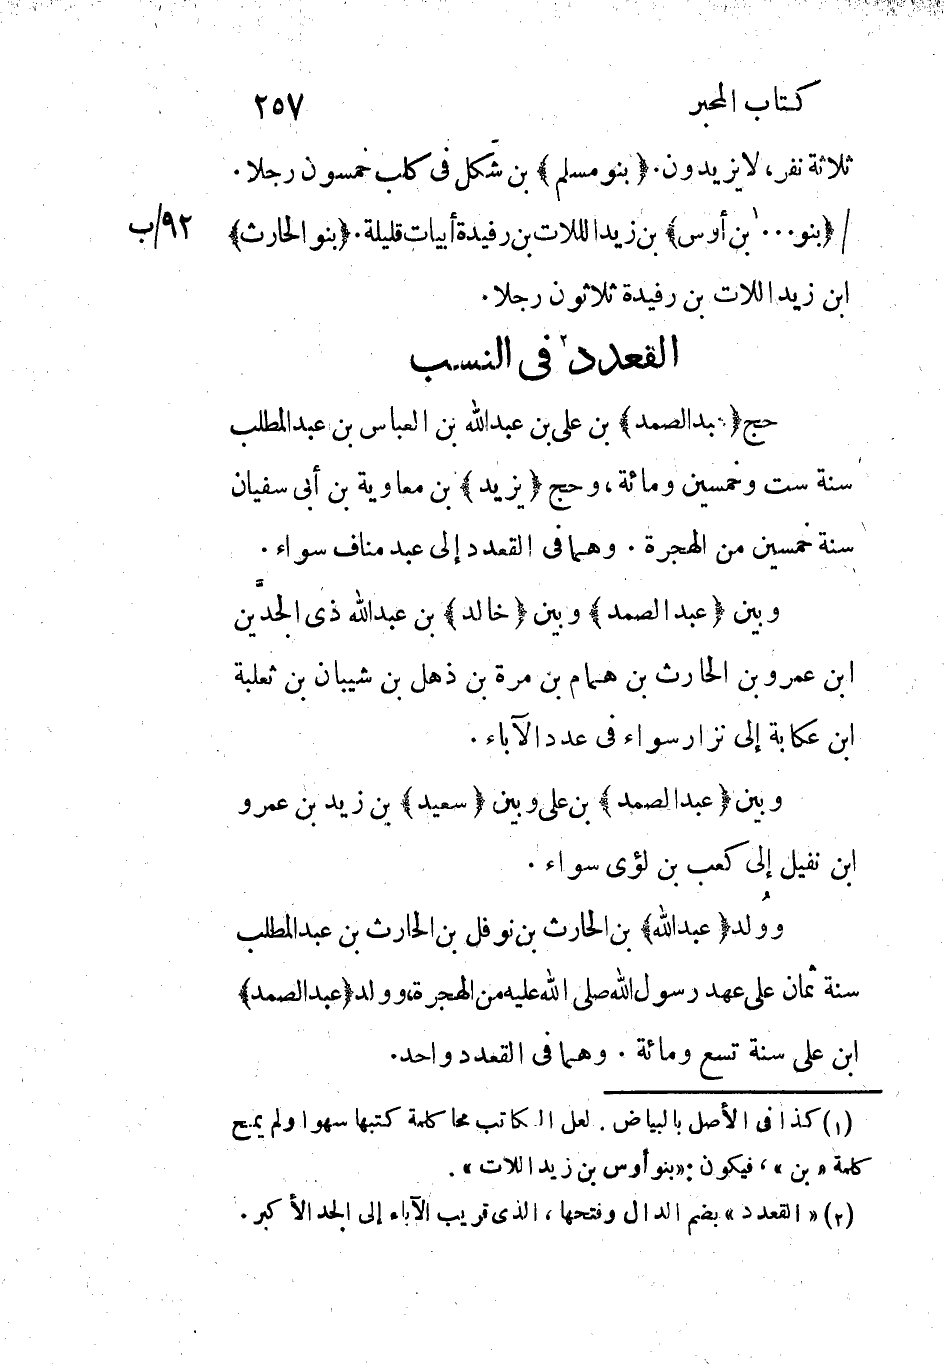 كتاب المحبر ٢٥٧
ثلاثة نفر، لا يزيدون. ﴿بنو مسلم﴾ بن شكل فى كلب خمسون رجلا.
/ ﴿بنو...١ بن أوس﴾ بن زيد اللات بن رفيدة أبيات قليلة. ﴿بنو الحارث﴾ ٩٢/ب
ابن زيد اللات بن رفيدة ثلاثون رجلا.
القعدد٢ فى النسب
حج ﴿عبد الصمد﴾ بن على بن عبد الله بن العباس بن عبد المطلب
سنة ست وخمسين ومائة، وحج ﴿يزيد﴾ بن معاوية بن أبى سفيان
سنة خمسين من الهجرة. وهما فى القعدد إلى عبد مناف سواء.
وبين ﴿عبد الصمد﴾ وبين ﴿خالد﴾ بن عبد الله ذى الجدَّين
ابن عمرو بن الحارث بن همام بن مرة بن ذهل بن شيبان بن ثعلبة
ابن عكابة إلى نزار سواء فى عدد الآباء.
وبين ﴿عبد الصمد﴾ بن على وبين ﴿سعيد﴾ بن زيد بن عمرو
ابن نفيل إلى كعب بن لؤى سواء.
ووُلد ﴿عبد الله﴾ بن الحارث بن نوفل بن الحارث بن عبد المطلب
سنة ثمان على عهد رسول الله صلى الله عليه من الهجرة، وولد ﴿عبد الصمد﴾
ابن على سنة تسع ومائة. وهما فى القعدد واحد.
(١) كذا فى الأصل بالبياض. لعل الكاتب محا كلمة كتبها سهوا ولم يمح
كلمة «بن»، فيكون: «بنو أوس بن زيد اللات».
(٢) «القعدد» بضم الدال وفتحها، الذى قريب الآباء إلى الجد الأكبر.